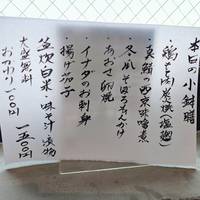 本日の小鉢膳
・鶏もも炭焼(塩麹)
・真鯛の西京味噌煮
・冬瓜そぼろあんかけ
・あおさ卵焼
・イナダのお刺身
・揚げ茄子
釜炊白米 味噌汁 漬物
大盛無料 一五〇〇円
おかわり一〇〇円